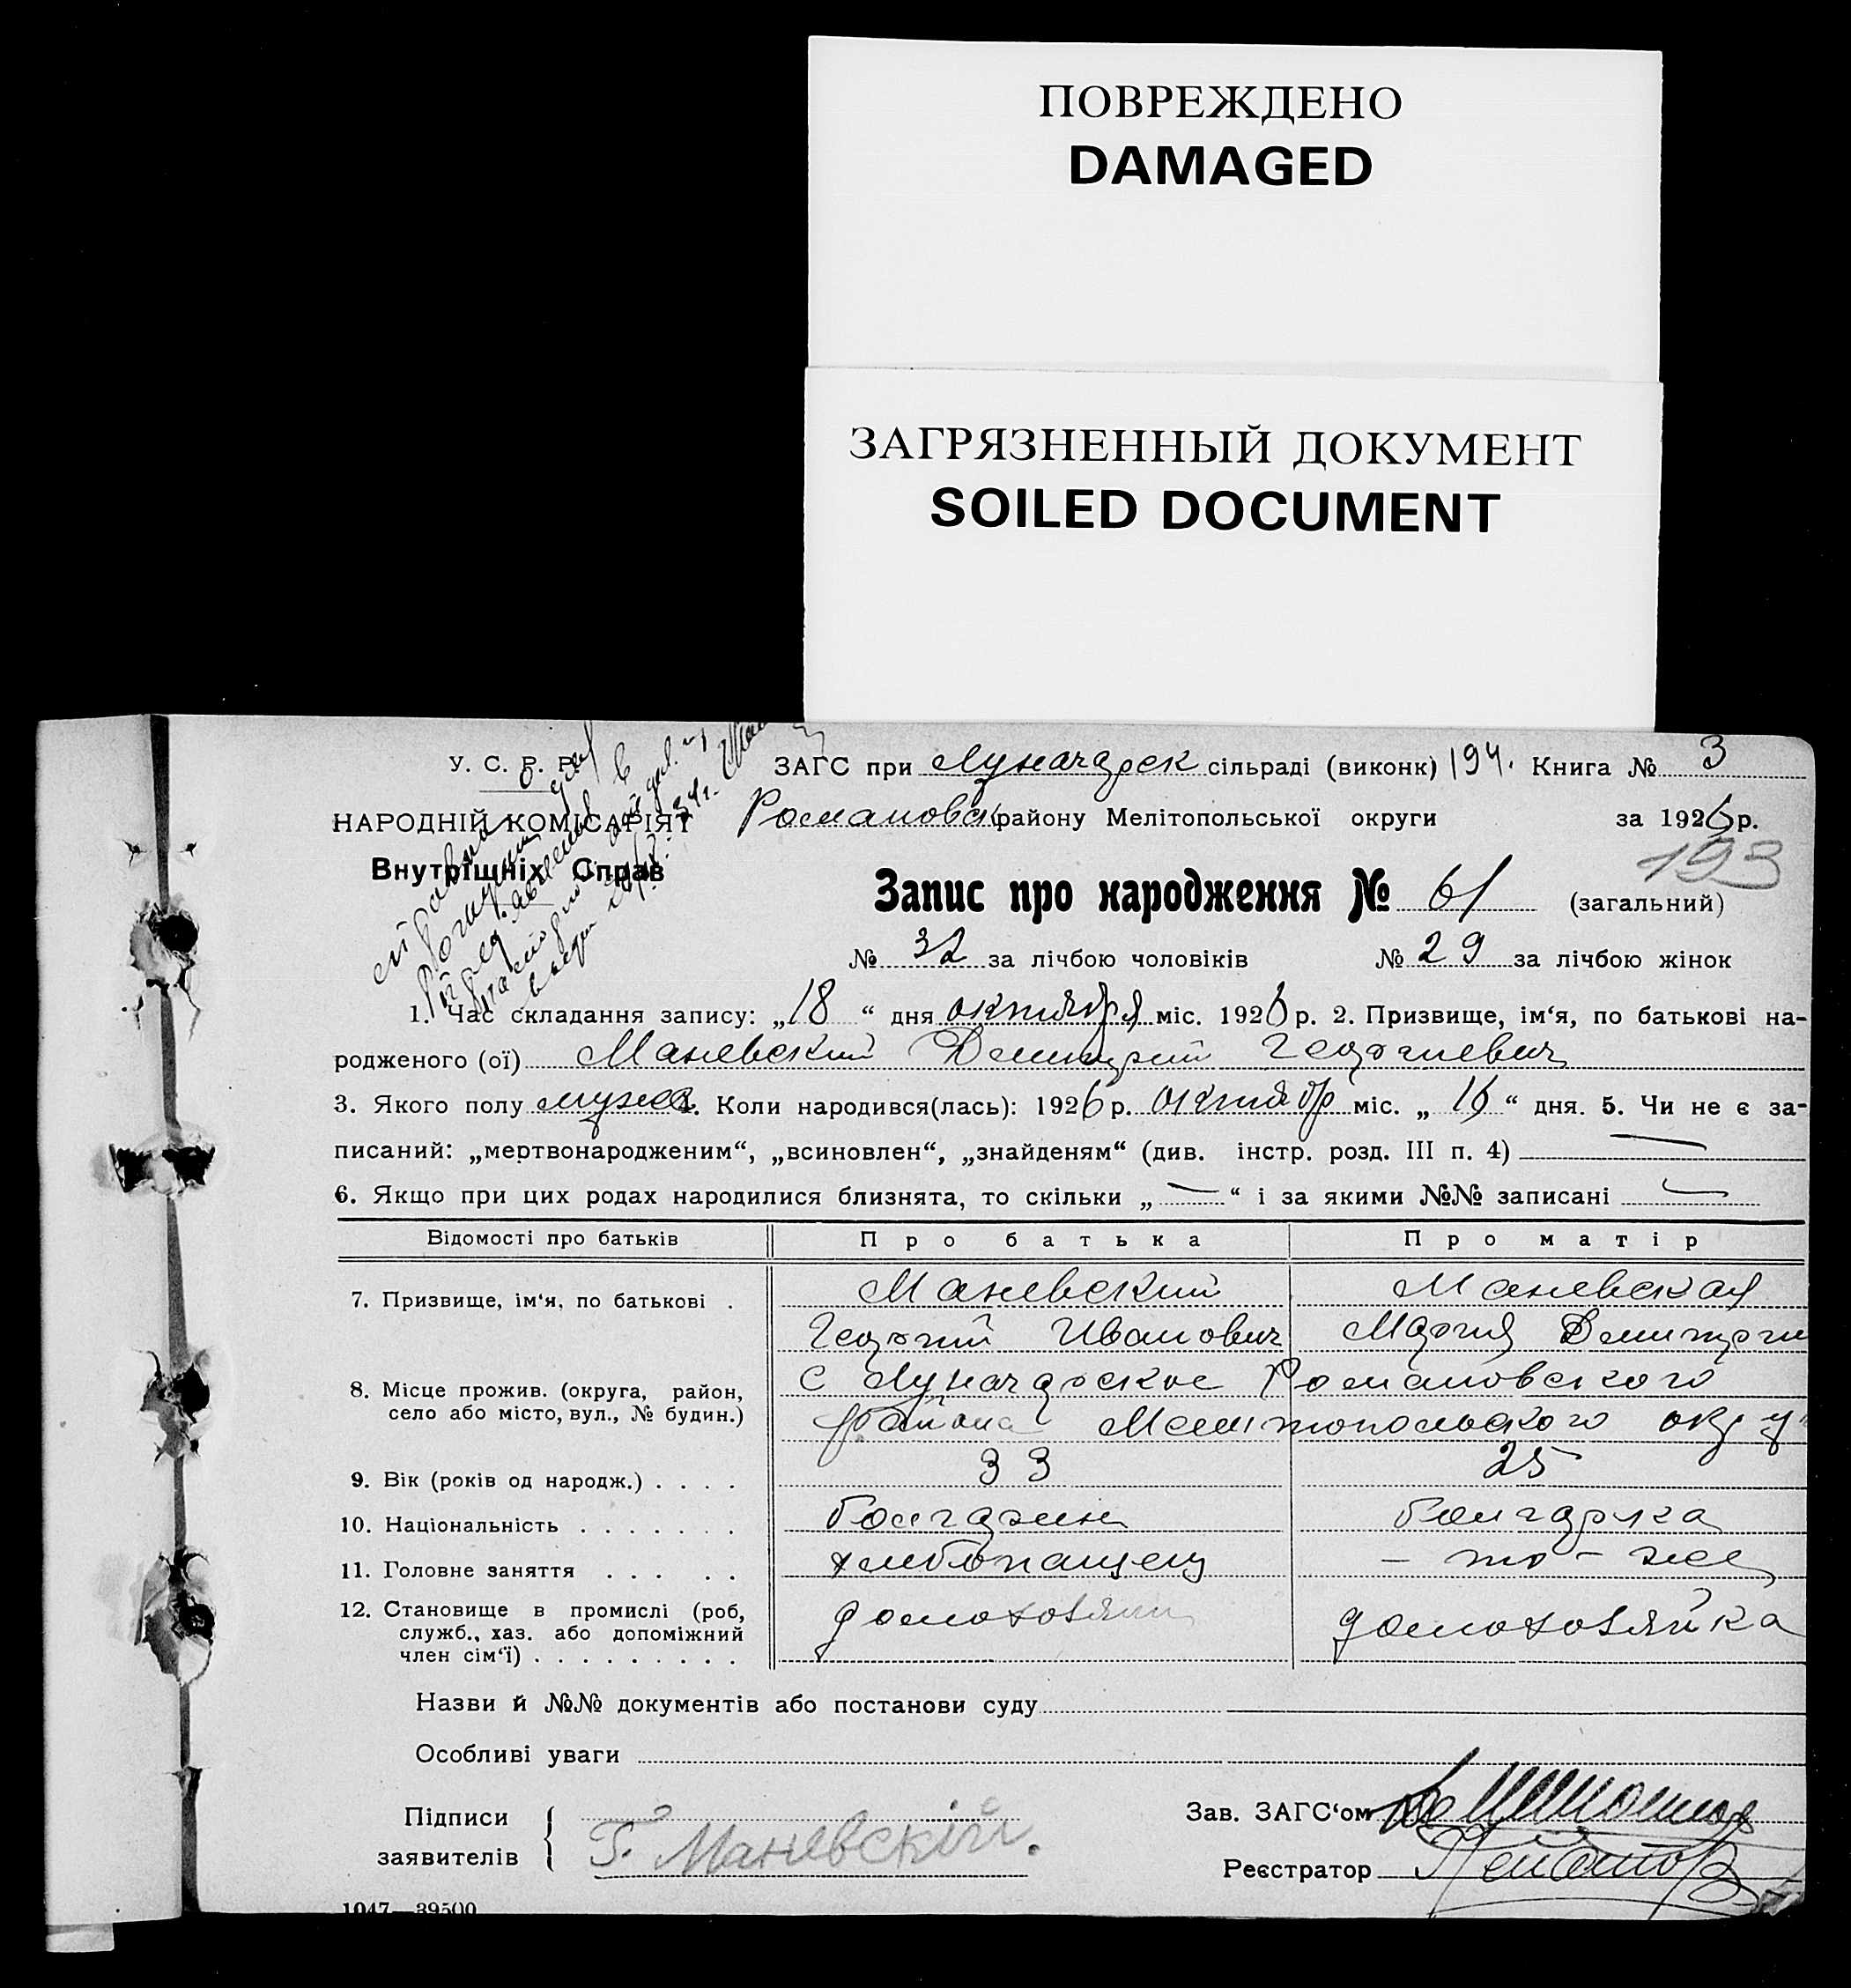 ПОВРЕЖДЕНО
DAMAGED
ЗАГРЯЗНЕННЫЙ ДОКУМЕНТ
SOILED DOCUMENT
У. С. Р. Р.
НАРОДНІЙ КОМІСАРІЯТ
Внутрішніх Справ
ЗАГС при Луначарск сільраді (виконк) 194. Книга № 3
Романовск району Мелітопольської округи за 1926 р.
193
Запис про народження № 61 (загальний)
№ 32 за лічбою чоловіків № 29 за лічбою жінок
1. Час складання запису: „18“ дня октября міс. 1926 р. 2. Призвище, ім‘я, по батькові на-
родженого (ої) Маневский Димитрий Георгиевич
3. Якого полу мужс 4. Коли народився(лась): 1926 р. октябр міс. „16“ дня. 5. Чи не є за-
писаний: „мертвонародженим“, „всиновлен“, „знайденям“ (див. інстр. розд. III п. 4) —
6. Якщо при цих родах народилися близнята, то скільки „—“ і за якими №№ записані —
Відомості про батьків Про батька Про матір
7. Призвище, ім‘я, по батькові . Маневский Маневская
Георгий Иванович Мария Димитри
8. Місце прожив. (округа, район, С Луначарское Романовского
село або місто, вул., № будин.) района Мелитопольского окр
9. Вік (років од народж.) . . . . 33 25
10. Національність . . . . . . . болгарин болгарка
11. Головне заняття . . . . . хлебопашец – то – же
12. Становище в промислі (роб, домохозяин домохозяйка
служб., хаз. або допоміжний
член сім‘ї) . . . . . . . . .
Назви й №№ документів або постанови суду
Особливі уваги
Підписи
заявителів Г. Маневскій.
Зав. ЗАГС‘ом
Реєстратор
1047—39500